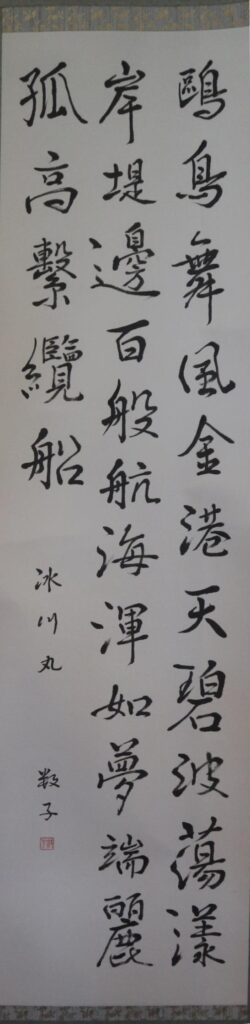 鷗鳥舞風金港天碧波蕩漾
岸堤邊百般航海渾如夢端麗
孤高繫纜船
冰川丸
毅子